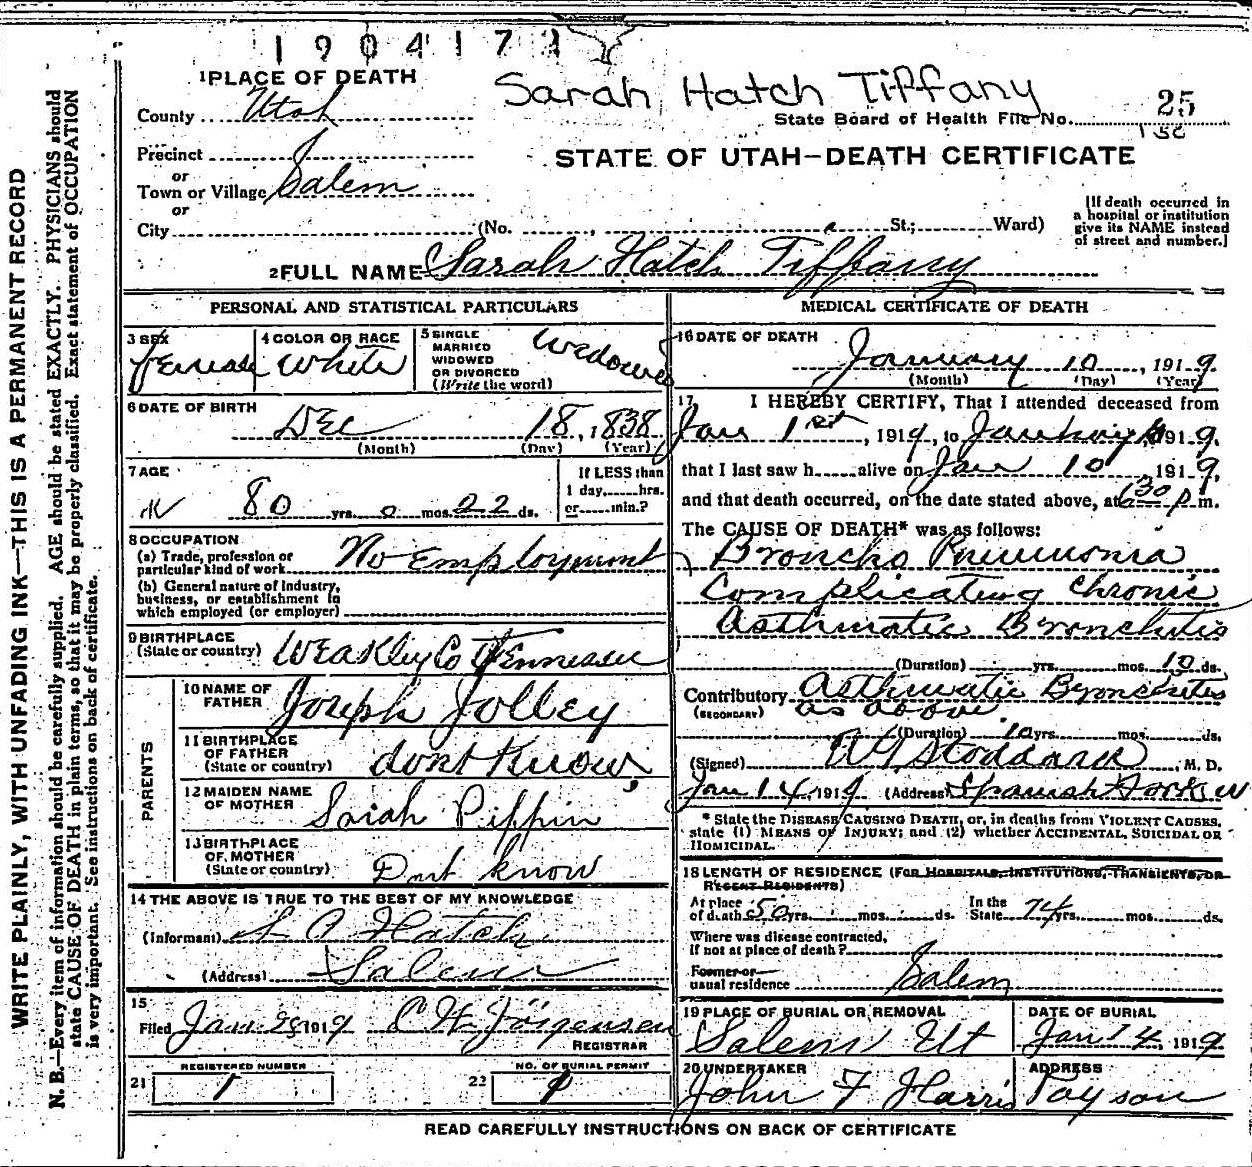 1904171
Sarah Hatch Tiffany
1 PLACE OF DEATH
County Utah
State Board of Health File No. 25
Precinct
STATE OF UTAH—DEATH CERTIFICATE
or
Town or Village Salem
or
City (No. , St.; Ward)
[If death occurred in
a hospital or institution
give its NAME instead
of street and number.]
2 FULL NAME Sarah Hatch Tiffany
PERSONAL AND STATISTICAL PARTICULARS
3 SEX
female
4 COLOR OR RACE
White
5 SINGLE
MARRIED
WIDOWED
OR DIVORCED
(Write the word)
Widowed
6 DATE OF BIRTH
Dec 18, 1838
(Month) (Day) (Year)
7 AGE
80 yrs. 0 mos. 22 ds.
If LESS than
1 day, hrs.
or min.?
8 OCCUPATION
(a) Trade, profession or
particular kind of work No Employment
(b) General nature of industry,
business, or establishment in
which employed (or employer)
9 BIRTHPLACE
(State or country) Weakley Co Tennessee
PARENTS
10 NAME OF
FATHER Joseph Jolley
11 BIRTHPLACE
OF FATHER
(State or country) dont Know
12 MAIDEN NAME
OF MOTHER Sarah Pippin
13 BIRTHPLACE
OF MOTHER
(State or country) Dont know
14 THE ABOVE IS TRUE TO THE BEST OF MY KNOWLEDGE
(Informant) Hatch
(Address) Salem
15
Filed Jan 1919 Jorgensen
REGISTRAR
21 REGISTERED NUMBER
1
22 NO. OF BURIAL PERMIT
1
MEDICAL CERTIFICATE OF DEATH
16 DATE OF DEATH
January 10, 1919
(Month) (Day) (Year)
17 I HEREBY CERTIFY, That I attended deceased from
Jan 1st, 1919, to January 1919,
that I last saw h alive on Jan 10, 1919,
and that death occurred, on the date stated above, at 6 30 p.m.
The CAUSE OF DEATH* was as follows:
Broncho Pneumonia
Complicating Chronic
Asthmatic Bronchitis
(Duration) yrs. mos. 10 ds.
Contributory Asthmatic Bronchitis
(SECONDARY) as above
(Duration) 10 yrs. mos. ds.
(Signed) Stoddard, M. D.
Jan 14, 1919 (Address) Spanish Fork
* State the DISEASE CAUSING DEATH, or, in deaths from VIOLENT CAUSES,
state (1) MEANS OF INJURY; and (2) whether ACCIDENTAL, SUICIDAL OR
HOMICIDAL.
18 LENGTH OF RESIDENCE (FOR HOSPITALS, INSTITUTIONS, TRANSIENTS, OR
RECENT RESIDENTS)
At place
of death 50 yrs. mos. ds.
In the
State 74 yrs. mos. ds.
Where was disease contracted,
if not at place of death?
Former or
usual residence Salem
19 PLACE OF BURIAL OR REMOVAL
Salem Ut
DATE OF BURIAL
Jan 14, 1919
20 UNDERTAKER
John F Harris
ADDRESS
Payson
READ CAREFULLY INSTRUCTIONS ON BACK OF CERTIFICATE
WRITE PLAINLY, WITH UNFADING INK—THIS IS A PERMANENT RECORD
N. B.—Every item of information should be carefully supplied. AGE should be stated EXACTLY. PHYSICIANS should
state CAUSE OF DEATH in plain terms, so that it may be properly classified. Exact statement of OCCUPATION
is very important. See instructions on back of certificate.